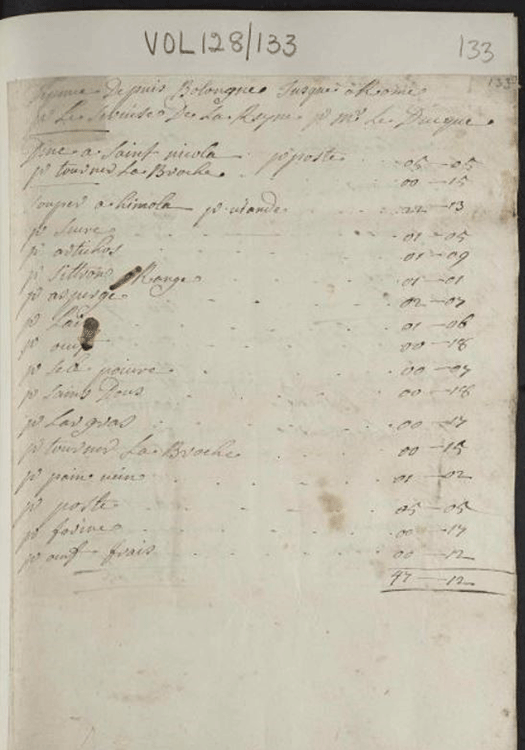 VOL 128/133
133
133
Depuis Bolongne Jusque a Rome
pr Le Service De La Reyne pr Mr Le Ducque
Dine a Saint nicola pr poste 05 - 05
pr tourner La Broche 00 - 15
Souper a himola pr viande 22 - 13
pr Sucre 01 - 05
pr artichos 01 - 09
pr Sittron Range 01 - 01
pr asperge 02 - 07
pr Lait 01 - 06
pr oeuf 00 - 18
pr sel poivre 00 - 07
pr Sains Dous 00 - 18
pr Lar gras 00 - 17
pr tourner La Broche 00 - 15
pr pain vein 01 - 02
pr poste 05 - 05
pr farine 00 - 17
pr oeuf frais 00 - 12
47 - 12